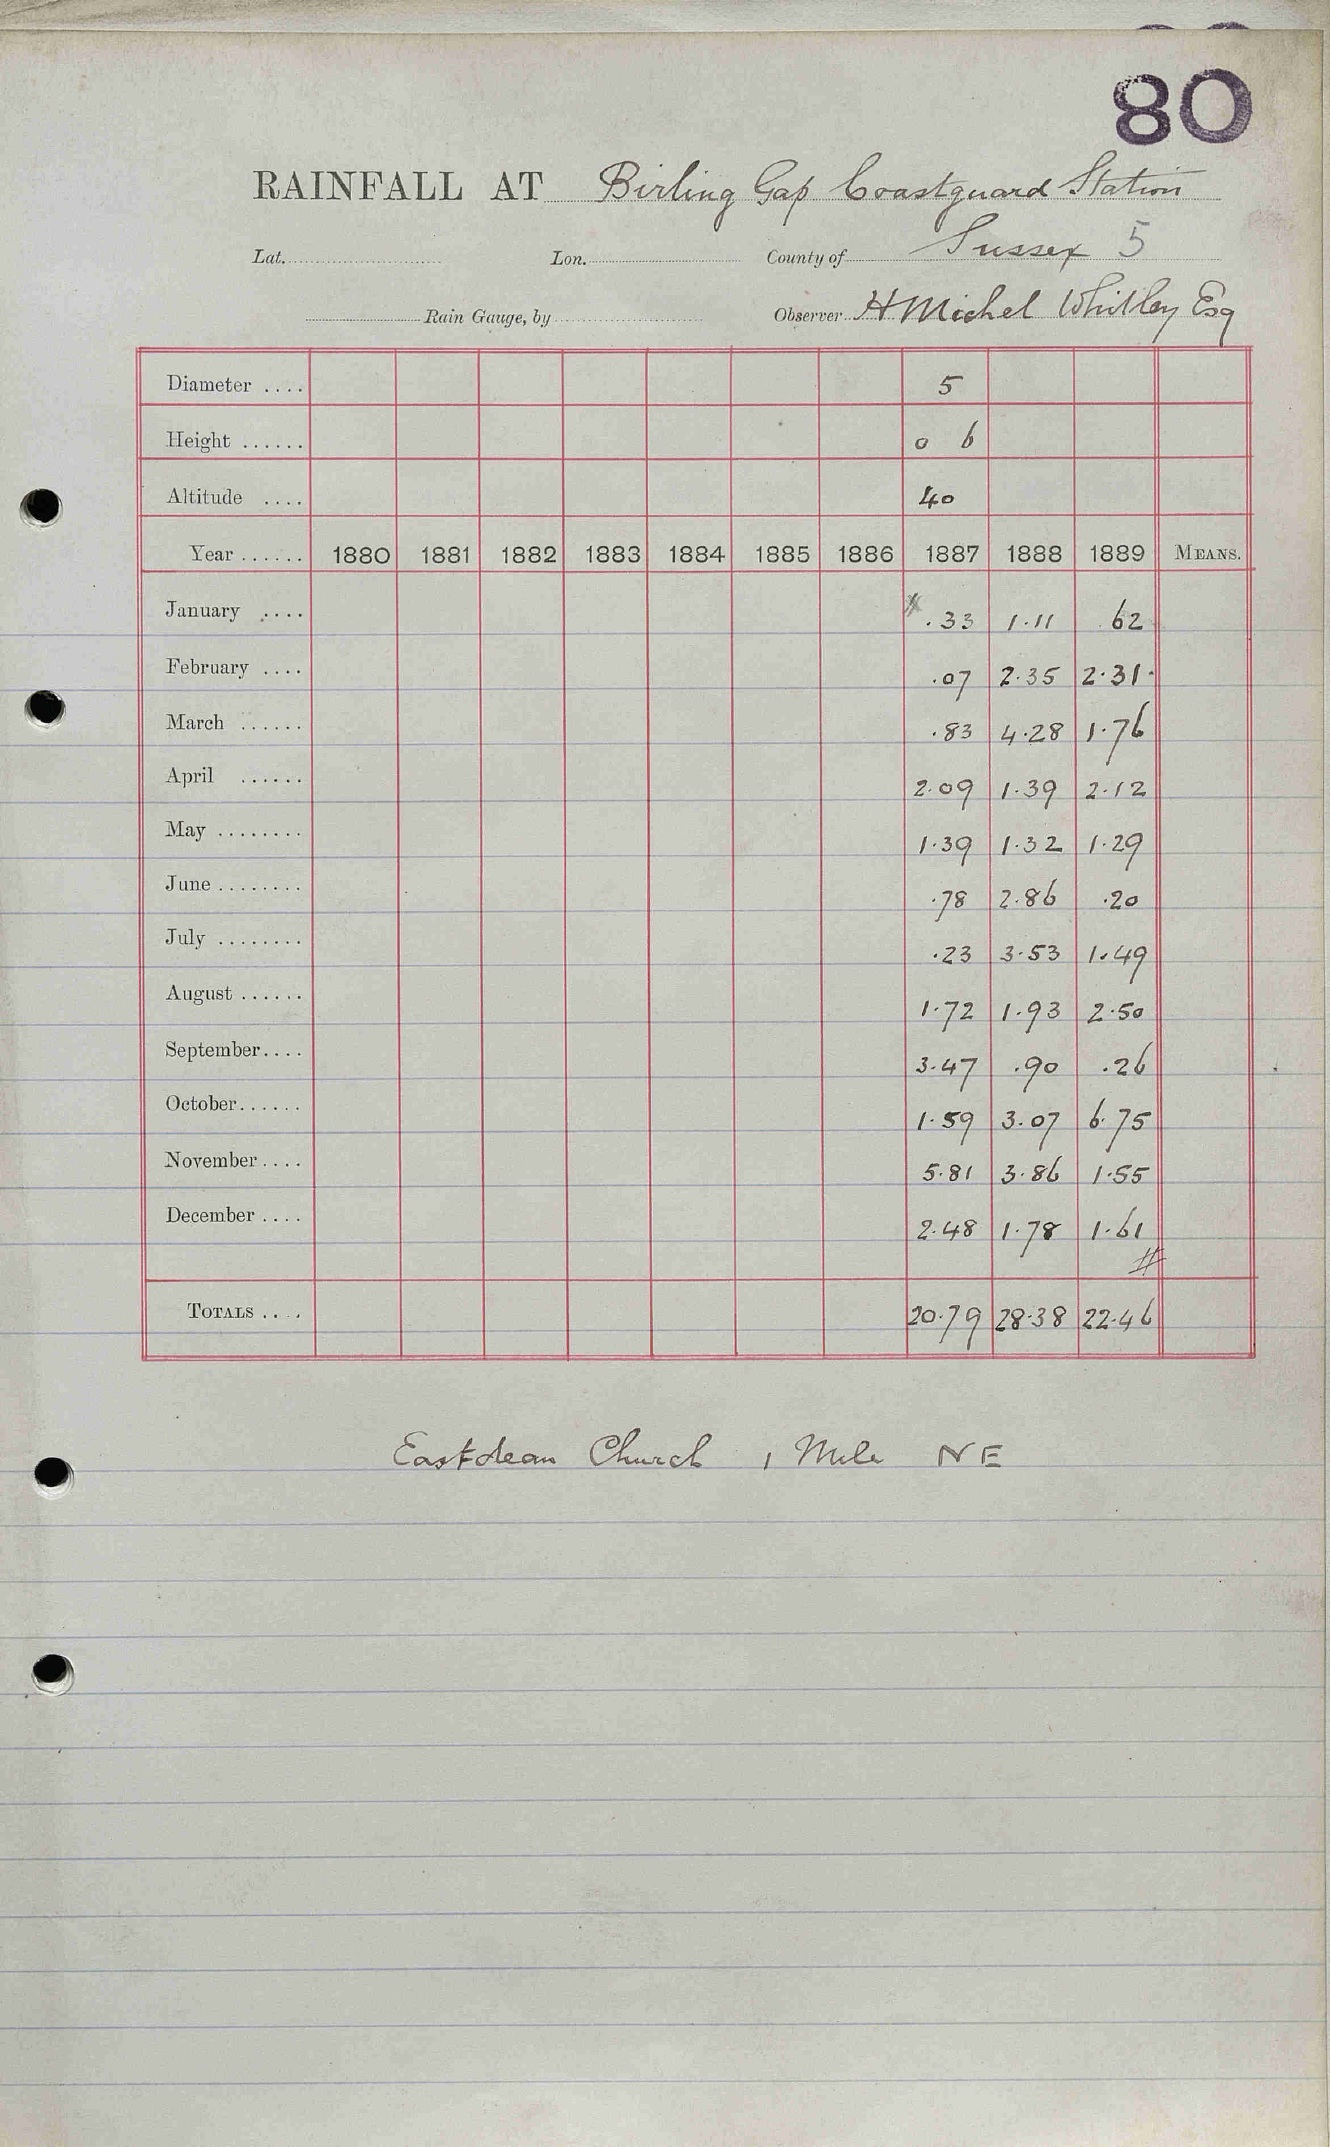 80
RAINFALL AT Birling Gap Coastguard Station
Lat. Lon. County of Sussex 5
Rain Gauge, by Observer H Michel Whitley Esq
Diameter .... 5
Height ...... 0 6
Altitude .... 40
Year ...... 1880 1881 1882 1883 1884 1885 1886 1887 1888 1889 MEANS.
January .... .33 1.11 62
February .... .07 2.35 2.31
March ...... .83 4.28 1.76
April ...... 2.09 1.39 2.12
May ........ 1.39 1.32 1.29
June ........ .78 2.86 .20
July ........ .23 3.53 1.49
August ...... 1.72 1.93 2.50
September .... 3.47 .90 .26
October ...... 1.59 3.07 6.75
November .... 5.81 3.86 1.55
December .... 2.48 1.78 1.61
TOTALS .... 20.79 28.38 22.46
Eastdean Church 1 Mile NE